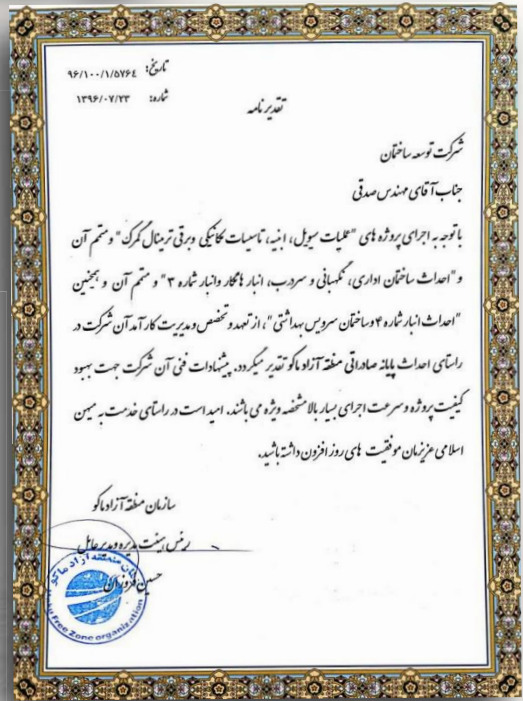 تاریخ: ۹۶/۱۰۰/۱/۵۷۶۴
شماره: ۱۳۹۶/۰۷/۲۳
تقدیرنامه
شرکت توسعه ساختمان
جناب آقای مهندس صدقی
با توجه به اجرای پروژه های "عملیات سیویل، ابنیه، تاسیسات مکانیکی و برقی ترمینال گمرک" و متمم آن
و "احداث ساختمان اداری، نگهبانی و سردرب، انبار هانگار و انبار شماره ۳" و متمم آن و همچنین
"احداث انبار شماره ۴ و ساختمان سرویس بهداشتی"، از تعهد و تخصص و مدیریت کارآمد آن شرکت در
راستای احداث پایانه صادراتی منطقه آزاد ماکو تقدیر میگردد. پیشنهادات فنی آن شرکت جهت بهبود
کیفیت پروژه و سرعت اجرای بسیار بالا مشخصه ویژه می باشند. امید است در راستای خدمت به میهن
اسلامی عزیزمان موفقیت های روز افزون داشته باشید.
سازمان منطقه آزاد ماکو
رئیس هیئت مدیره و مدیر عامل
حسین فروزان
سازمان منطقه آزاد ماکو
Free Zone organization